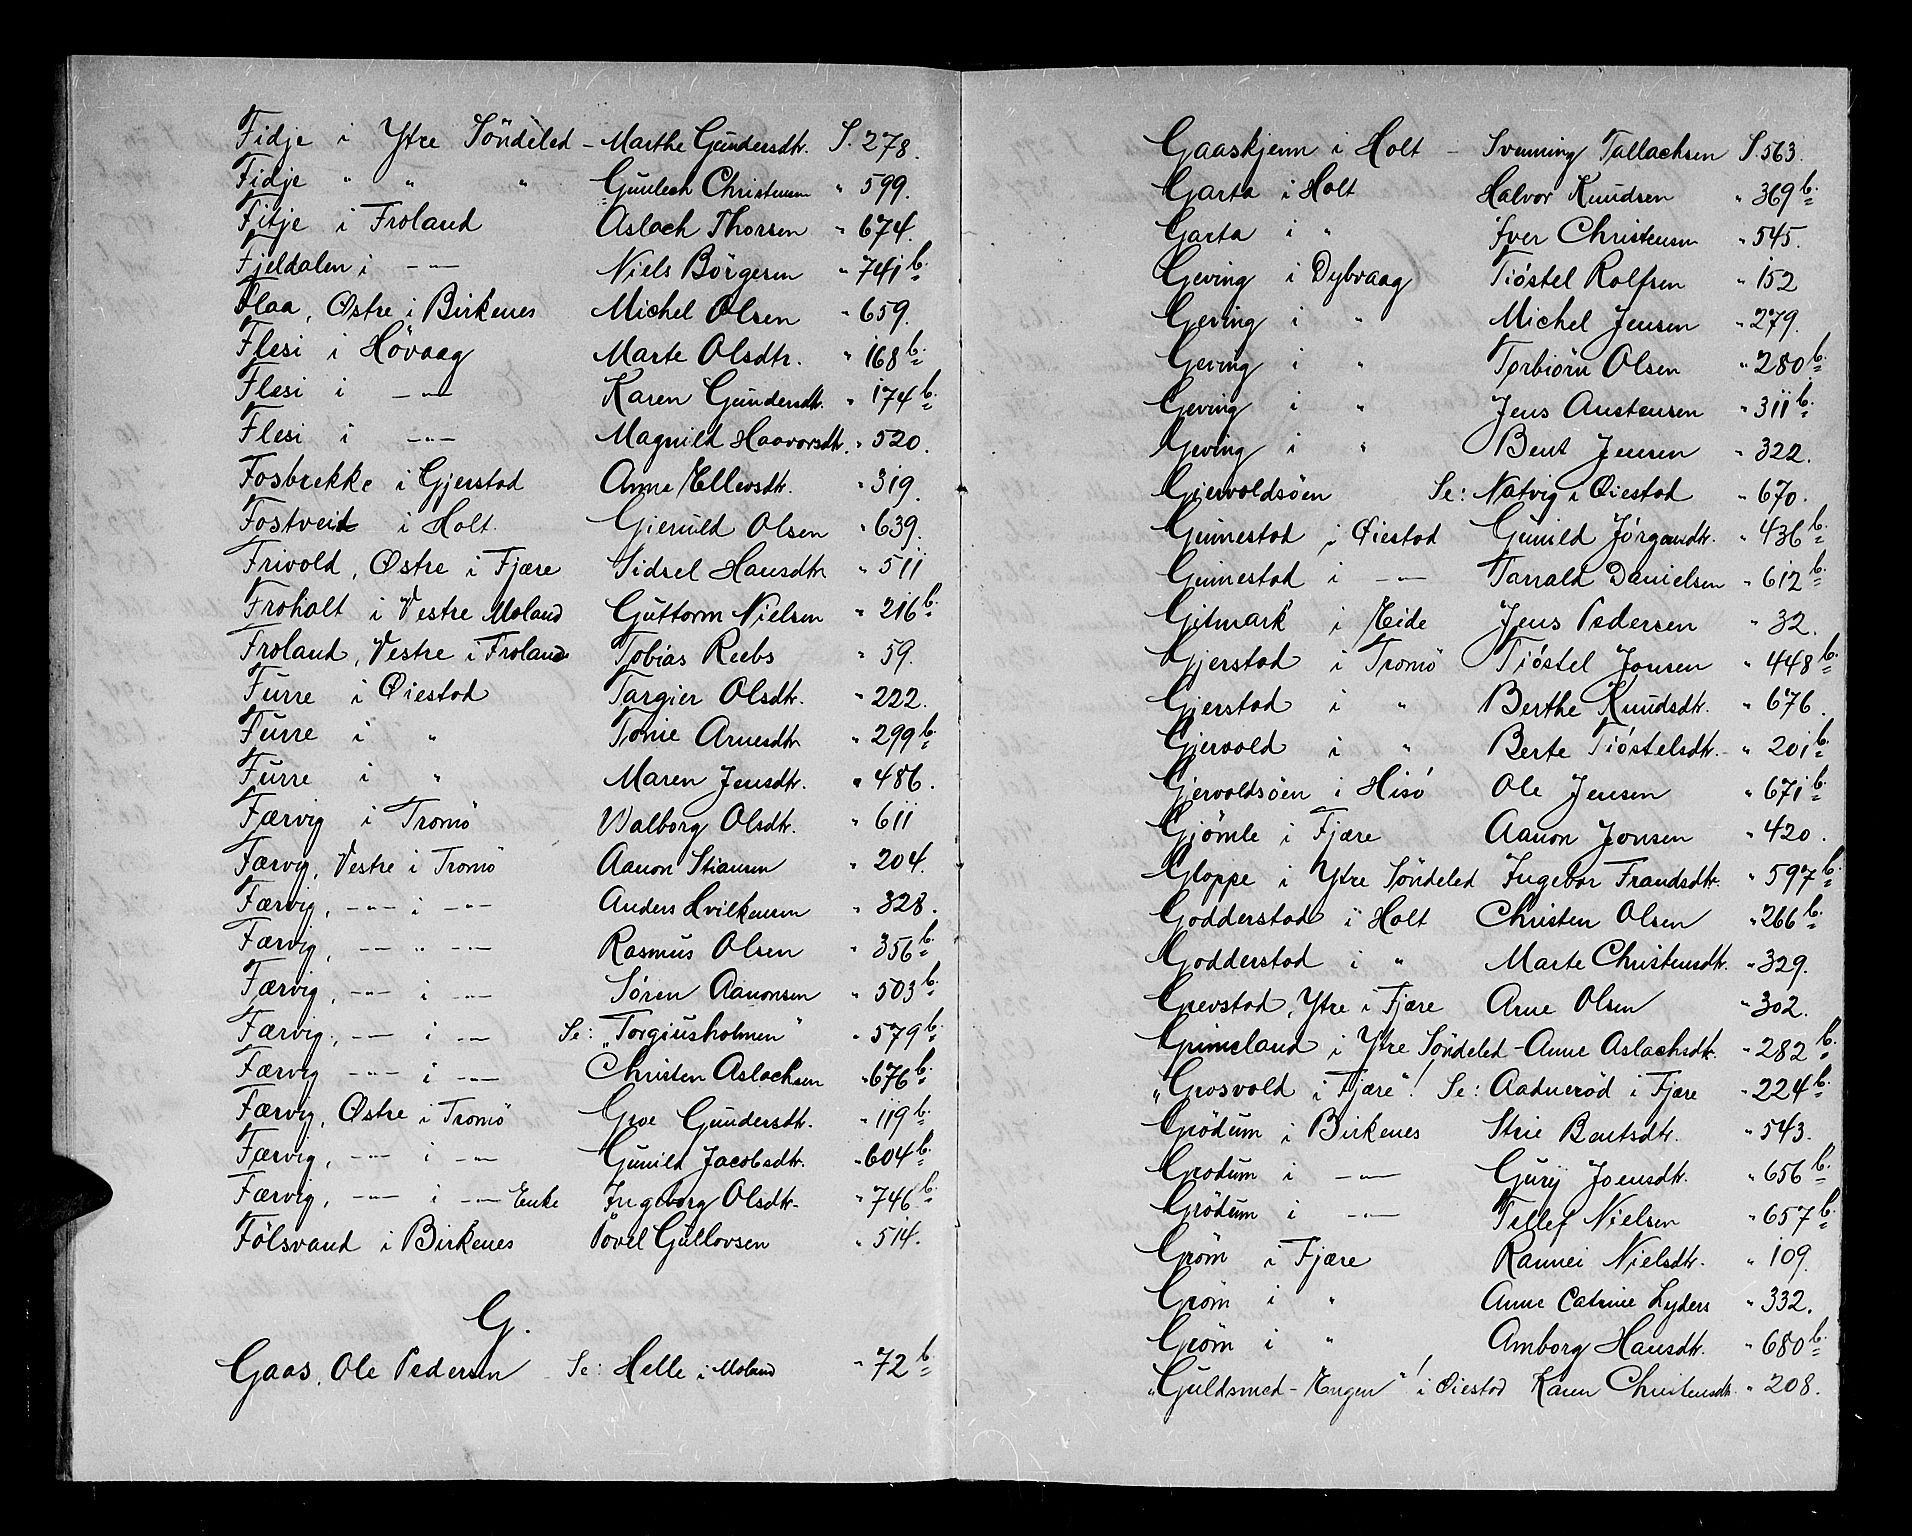 Fidje i Ytre Söndeled - Marthe Gundersdtr. S. 278.
Fidje " " " Gunlech Christensen " 599.
Fitje i Froland Aslach Thorsen " 674.
Fjeldalen i -"- Niels Börgesen " 741 b.
Flaa, Østre i Birkenes Michel Olsen " 659.
Flesi i Hövaag Marte Olsdtr. " 168 b.
Flesi i -"- Karen Gundersdtr. " 174 b.
Flesi i -"- Magnild Haavorsdtr. " 520.
Fosbrekke i Gjerstad Anne Ellevsdtr. " 319.
Fostveit i Holt. Gieruld Olsen " 639.
Frivold, Østre i Fjære Sidsel Hansdtr " 511
Froholt i Vestre Moland Guttorm Nielsen " 216 b.
Froland, Vestre i Froland Tobias Reebs " 59.
Furre i Øiestad Targier Olsdtr. " 222.
Furre i " Tonie Arnesdtr " 299 b.
Furre i " Maren Jensdtr. " 486.
Færvig i Tromö Walborg Olsdtr. " 611
Færvig, Vestre i Tromö Aanon Stiansen " 204.
Færvig, -"- i -"- Anders Hvilkensen " 328.
Færvig, -"- " -"- Rasmus Olsen " 356 b.
Færvig, -"- i -"- Sören Aanonsen " 503 b.
Færvig, -"- i -"- Se: "Torgiusholmen" " 579 b.
Færvig -"- i -"- Christen Aslachsen " 676 b.
Færvig, Østre i Tromö Groe Gundersdtr. " 119 b.
Færvig, -"- i -"- Gunild Jacobsdtr. " 604 b.
Færvig, -"- i -"- Enke Ingeborg Olsdtr. " 746 b.
Fölsvand i Birkenes Povel Gullovsen " 514.
G.
Gaas, Ole Pedersen - Se: Helle i Moland " 72 b.
Gaaskjenn i Holt - Svenning Tallachsen S. 563.
Garta i Holt Halvor Knudsen " 369 b.
Garta i " Iver Christensen " 545.
Geving i Dybvaag Tióstel Rolfsen " 152
Geving i " Michel Jensen " 279.
Geving i " Torbiörn Olsen " 280 b.
Geving i " Jens Austensen " 311 b.
Geving i " Bent Jensen " 322.
Gjervoldsöen Se: Natvig i Øiestad " 670.
Gimestad i Øiestad Gunild Jörgensdtr. " 436 b.
Gimestad i -"- Tarrald Danielsen " 612 b.
Gitmark i Eide Jens Pedersen " 32.
Gjerstad i Tromö Tióstel Jonsen " 448 b.
Gjerstad i " Berthe Knudsdtr. " 676.
Gjervold i " Berte Tióstelsdtr. " 201 b.
Gjervoldsöen i Hisö Ole Jensen " 671 b.
Gjömle i Fjære Aanon Jonsen " 420.
Gloppe i Ytre Söndeled Ingebor Frandsdtr. " 597 b.
Godderstad i Holt Christen Olsen " 266 b.
Godderstad i " Marte Christensdtr. " 329.
Grevstad, Ytre i Fjære Arne Olsen " 302.
Grimeland i Ytre Söndeled - Anne Aslachsdtr. " 282 b.
"Grosvold i Fjære"! Se: Aadneröd i Fjære " 224 b.
Grödum i Birkenes Strie Bentsdtr. " 543.
Grodum i -"- Gurij Joensdtr. " 656 b.
Grödum i -"- Tellef Nielsen " 657 b.
Gröm i Fjære Rannei Nielsdtr. " 109.
Gröm i " Anne Catrine Lyders " 332.
Gröm i " Amborg Hansdtr. " 680 b.
"Guldsmed-Engen"! i Øiestad Karen Christensdtr. " 208.